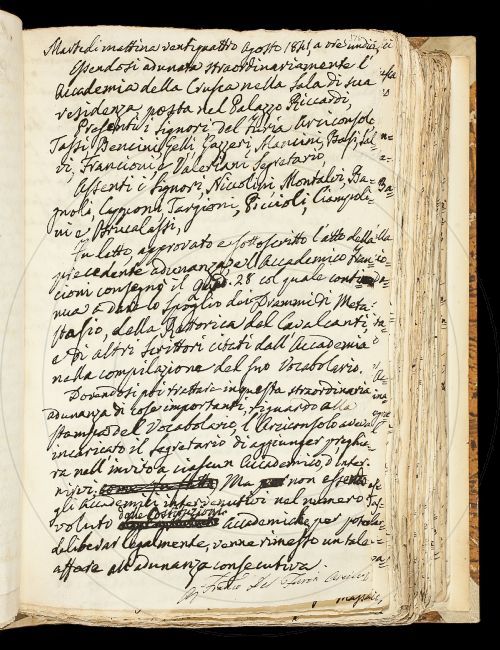 Martedi mattina ventiquattro Agosto 1841, a ore undici,
Essendosi adunata straordinariamente l'
Accademia della Crusca nella Sala di sua
residenza posta nel Palazzo Riccardi,
Presenti i Signori Del Furia Arciconsolo
Tassi, Bencini, Gelli, Gazzeri, Mancini, Sal=
vi, Francioni e Valeriani Segretario,
Assenti i Signori, Niccolini, Montalvi, Ba=
gnoli, Capponi, Targioni, Piccioli, Ciampoli=
ni e Brucalassi,
Fu letto, approvato e sottoscritto l'atto della
precedente adunanza, e l'Accademico Fran=
cioni consegnò il 28 col quale
nua a dare lo Spoglio dei Drammi di Meta=
stasio, della Rettorica del Cavalcanti
e di altri Scrittori citati dall'Accademia
nella compilazione del suo Vocabolario.
Dovendosi poi trattare in questa straordinaria
adunanza di cose importanti, riguardo alla
stampa del Vocabolario, l'Arciconsolo aveva
incaricato il Segretario di aggiunger preghie=
ra nell'invito a ciascun Accademico, d'inter=
nirvi. Ma non essendo
gli Accademici intervenutivi nel numero
voluto dalle Costituzioni Accademiche, per poter
deliberar legalmente, venne rimesso un tale
affare all'adunanza consecutiva.
Franco Del Furia